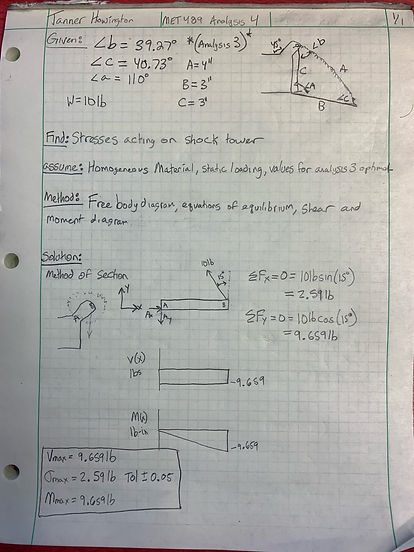 Tanner Howington MET 489 Analysis 4 1/1
Given: ∠b = 39.27° *(Analysis 3)*
∠c = 40.73° A=4"
∠a = 110° B=3"
W=10lb C=3"
15° ∠b
A
C
∠A
∠C
B
Find: Stresses acting on shock tower
assume: Homogeneous Material, static loading, values for analysis 3 optimal
Method: Free body diagram, equations of equilibrium, shear and
moment diagram
Solution:
Method of section
10lb
15°
Y
X
A B
Ax
Ay
ΣFx=0=10lbsin(15°)
=2.59lb
ΣFy=0=10lbcos(15°)
=9.659lb
V(x)
lbs
-9.659
M(x)
lb-in
-9.659
Vmax = 9.659lb
σmax = 2.59lb Tol ± 0.05
Mmax = 9.659lb